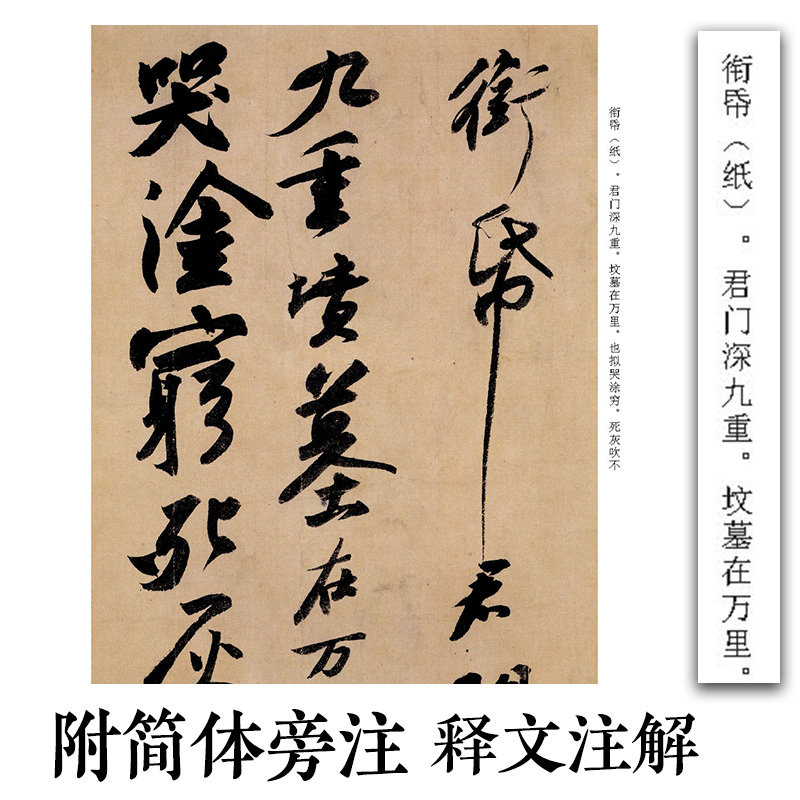 衔帋（纸）。君门深九重。坟墓在万里。
衔帋（纸）。君门深九重。坟墓在万里。也拟哭涂穷。死灰吹不
衔帋君
九重墳墓在万
哭塗窮死灰
附简体旁注 释文注解